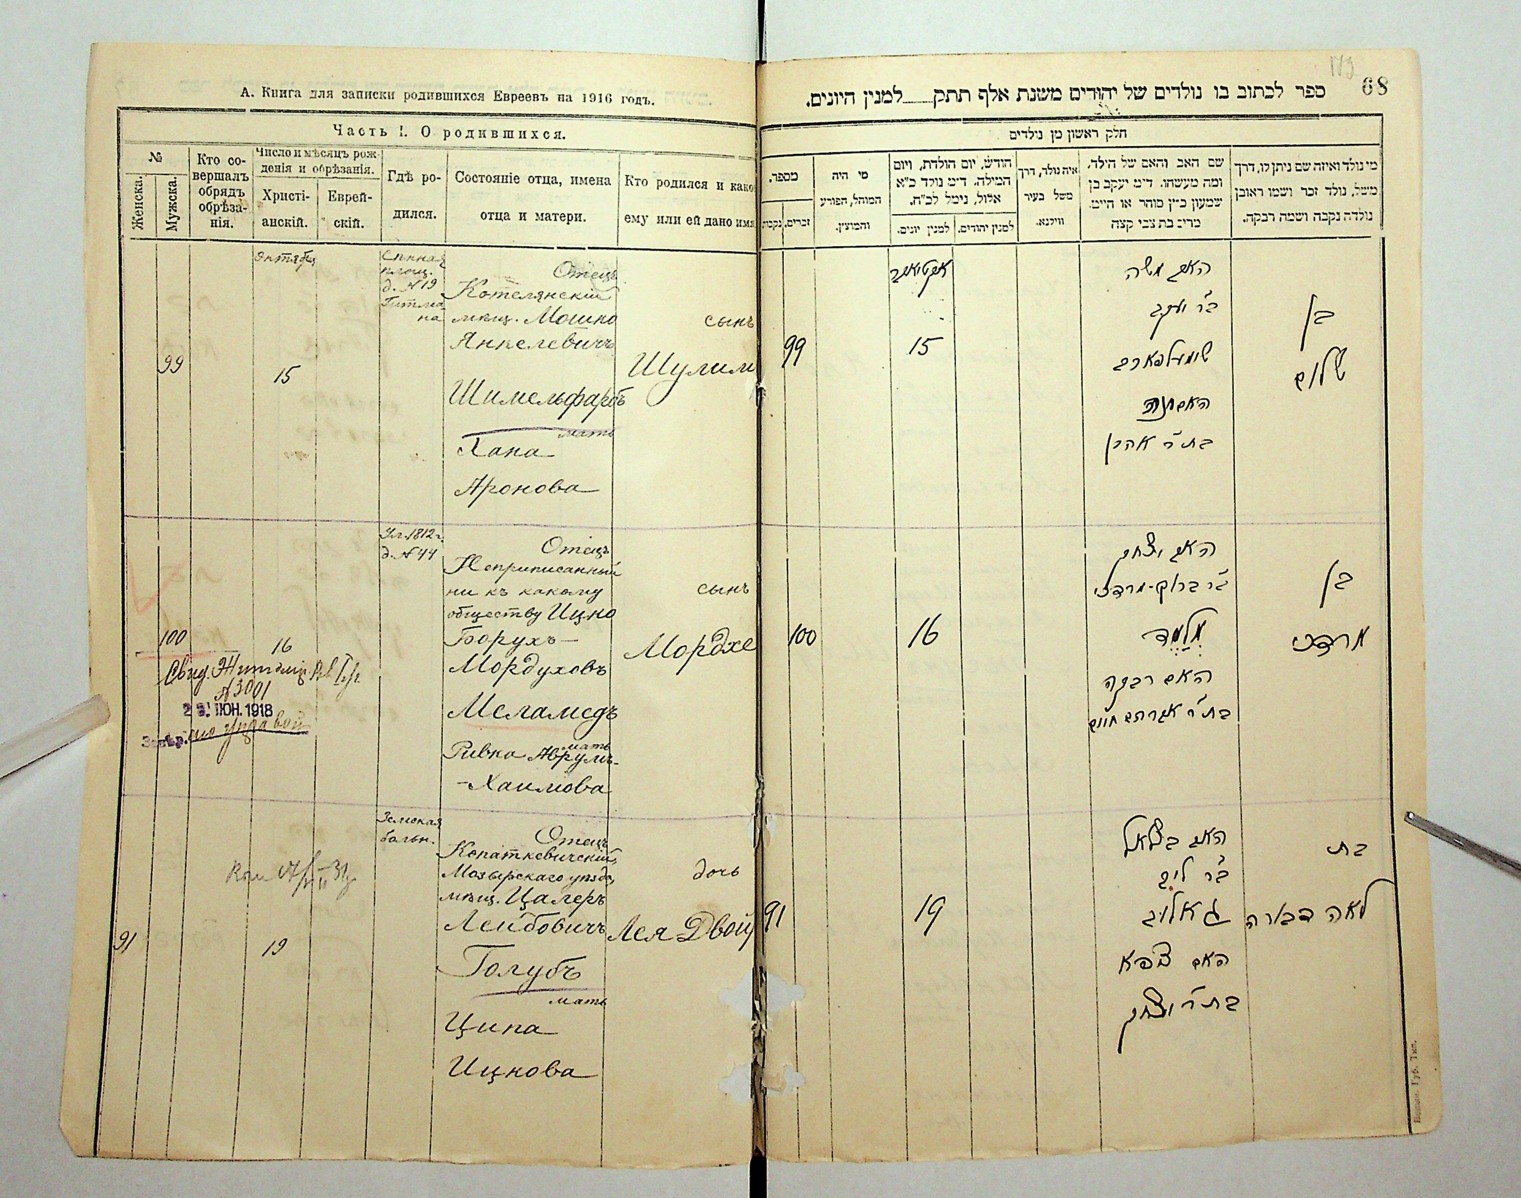 А. Книга для записки родившихся Евреевъ на 1916 годъ.
Часть I. О родившихся.
№
Женска.
Мужска.
Кто со-
вершалъ
обрядъ
обрѣза-
нія.
Число и мѣсяцъ рож-
денія и обрѣзанія.
Христі-
анскій.
Еврей-
скій.
Гдѣ ро-
дился.
Состояніе отца, имена
отца и матери.
Кто родился и како
ему или ей дано имя
Октябрь
99
15
Сѣнная
площ.
д. №19
Гитма
на
Отецъ
Котелянскій
мѣщ. Мошко
Янкелевичъ
Шимельфарбъ
мать
Хана
Аронова
сынъ
Шулим
100
16
Ул. 1812 г.
д. №44
Отецъ
Неприписанный
ни къ какому
обществу Ицко
Борухъ-
Мордуховъ
Меламедъ
мать
Ривка Аврумъ-
-Хаимова
сынъ
Мордхе
№3001
ІЮН. 1918
91
19
Земская
больн.
Отецъ
Копаткевичскій,
Мозырскаго уѣзда,
мѣщ. Цалеръ
Лейбовичъ
Голубъ
мать
Ципа
Ицкова
дочь
Лея Двой
68
ספר לכתוב בו נולדים של יהודים משנת אלף תתק למנין היונים.
חלק ראשון מן נולדים
מספר.
זכרים.
נקבות
מי היה
המוהל, הפורע
והמוצץ.
חודש, יום הולדת, ויום
המילה. ד״מ נולד כ״א
אלול, נימל לכ״ח.
למנין יונים.
למנין יהודים.
איה נולד, דרך
משל בעיר
ווילנא.
שם האב והאם של הילד.
ומה מעשהו. ד״מ יעקב בן
שמעון כ״ץ סוחר או חייט.
מרים בת צבי קצה
מי נולד ואיזה שם ניתן לו, דרך
משל, נולד זכר ושמו ראובן
נולדה נקבה ושמה רבקה.
99
אקטיאבר
15
האב משה
ב״ר יעקב
שימעלפארב
האם חנה
בת ר׳ אהרן
בן
שלום
100
16
האב יצחק
ב״ר ברוך-מרדכי
מלמד
האם רבקה
בת ר׳ אברהם חיים
בן
מרדכי
91
19
האב בצלאל
ב״ר ליב
גאלוב
האם ציפא
בת ר׳ יצחק
בת
לאה דבורה
Волын. Губ. Тип.